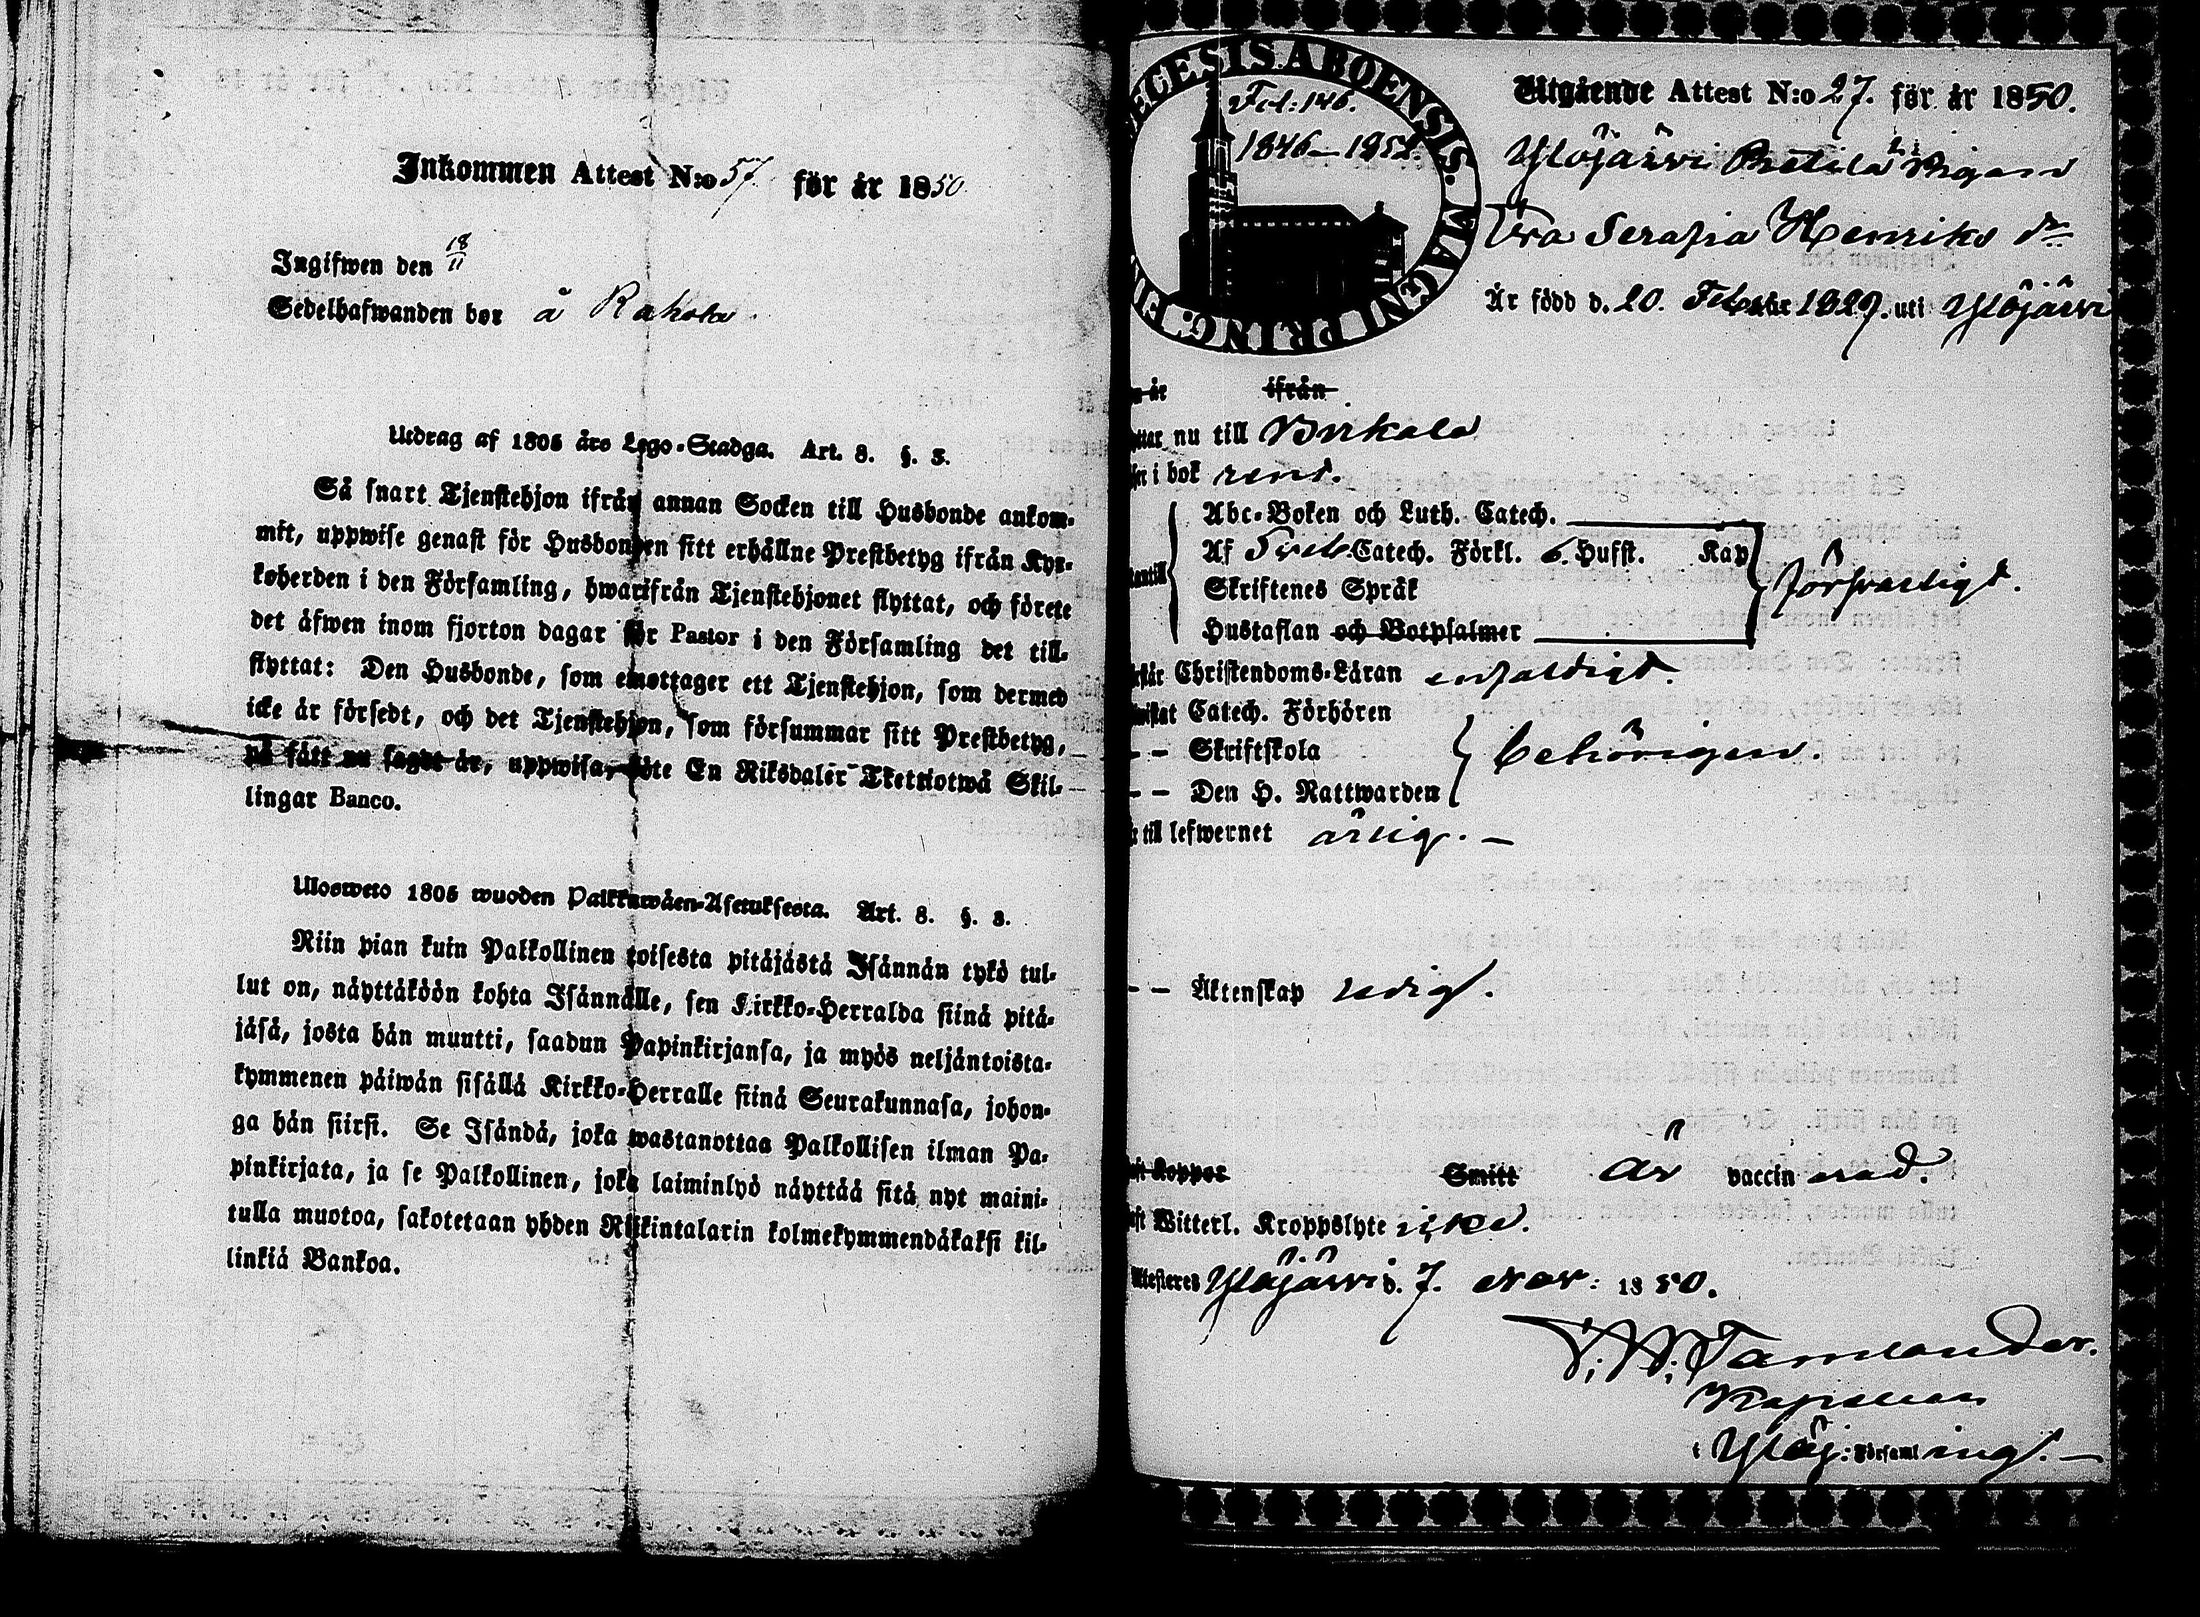 Inkommen Attest N:o 57. för år 1850
Ingifwen den 18/11
Sedelhafwanden bor å Rahola.
Utdrag af 1805 års Lego-Stadga. Art. 8. §. 3.
Så snart Tjenstehjon ifrån annan Socken till Husbonde ankom-
mit, uppwise genast för Husbonden sitt erhållne Prestbetyg ifrån Kyr-
koherden i den Församling, hwarifrån Tjenstehjonet flyttat, och förete
det äfwen inom fjorton dagar för Pastor i den Församling det till-
flyttat: Den Husbonde, som emottager ett Tjenstehjon, som dermed
icke är försedt, och det Tjenstehjon, som försummar sitt Prestbetyg,
på sätt nu sagdt är, uppwisa, böte En Riksdaler Trettiotwå Skil-
lingar Banco.
Ulosweto 1805 wuoden Palkkawäen-Asetuksesta. Art. 8. §. 3.
Niin pian kuin Palkollinen toisesta pitäjästä Isännän tykö tul-
lut on, näyttäköön kohta Isännälle, sen Kirkko-Herralda siinä pitä-
jäsä, josta hän muutti, saadun Papinkirjansa, ja myös neljäntoista-
kymmenen päiwän sisällä Kirkko-Herralle siinä Seurakunnasa, johon-
ga hän siirsi. Se Isändä, joka wastanottaa Palkollisen ilman Pa-
pinkirjata, ja se Palkollinen, joka laiminlyö näyttää sitä nyt maini-
tulla muotoa, sakotetaan yhden Riikintalarin kolmekymmendäkaksi kil-
linkiä Bankoa.
DIECESIS. ABOENSIS. MAGNI PRINC. FIN
Fol: 146.
1846–1852.
Utgående Attest N:o 27. för år 1850.
Ylöjärvi Pigan
Eva Serafia Henriks dr
Är född d. 20. Febr år 1829. uti Ylöjärvi
år ifrån
ttar nu till Birkala
ser i bok rent.
Abc-Boken och Luth. Catech.
Af Sveb. Catech. Förkl. 6. Hufst. Kap
Skriftenes Språk
Hustaflan och Botpsalmer
försvarligt.
rstår Christendoms-Läran enfaldigt.
wistat Catech. Förhören
– – Skriftskola
– – Den H. Nattwarden
behörigen.
r till lefwernet ärlig. –
– – Äktenskap ledig.
ft Koppor Smitt är vaccinerad.
aft Witterl. Kroppslyte icke.
Attesteres Ylöjärvi d. 7. Nov: 1850.
Tamlander.
Kapellan
i Ylöj: Församling. –